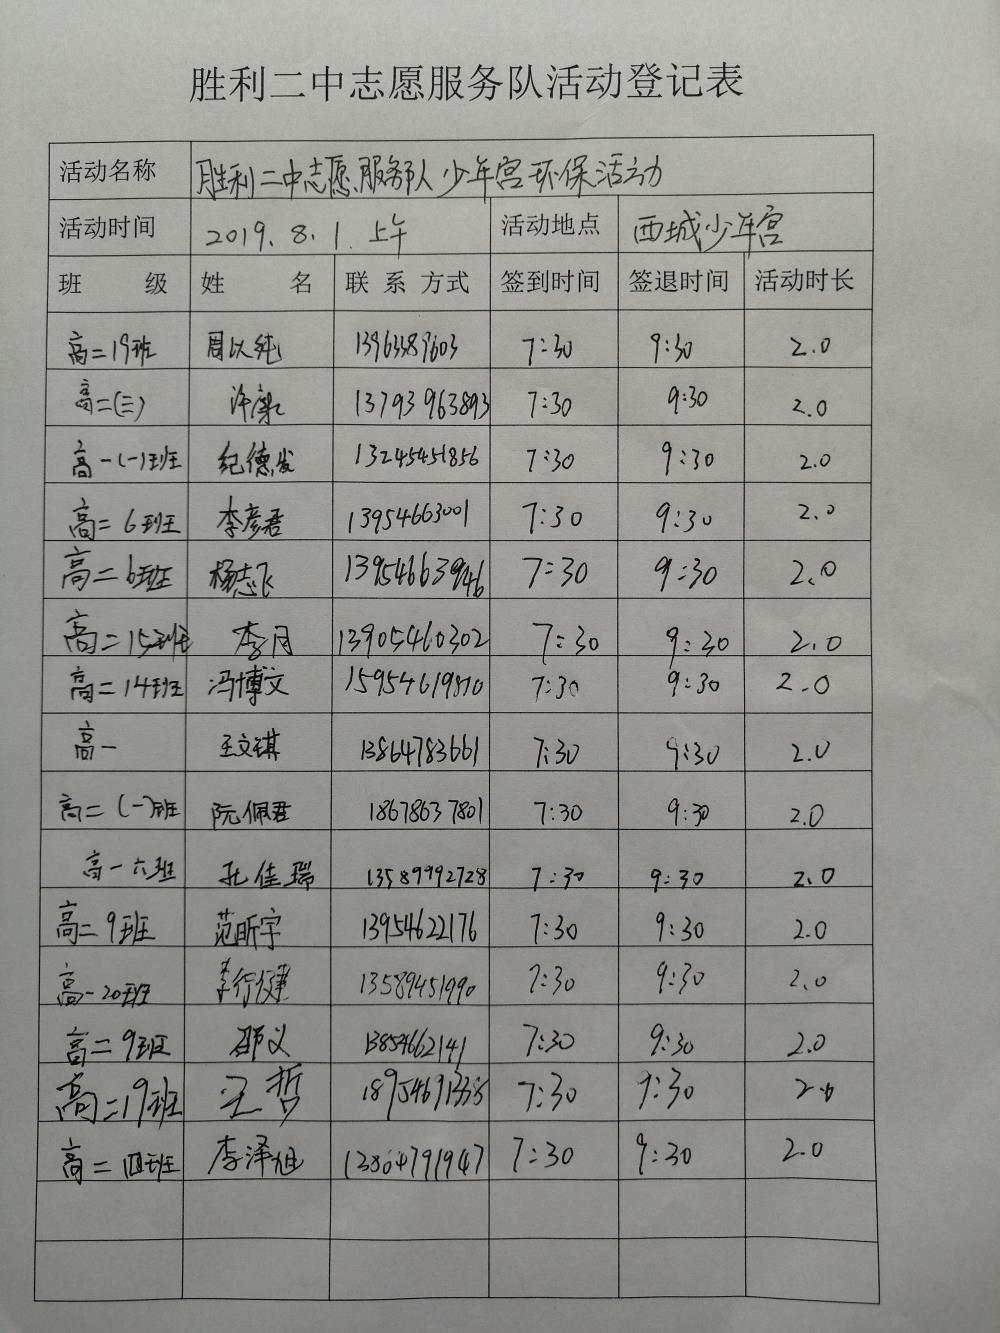 胜利二中志愿服务队活动登记表
活动名称 胜利二中志愿服务队少年宫环保活动
活动时间 2019.8.1.上午 活动地点 西城少年宫
班 级 姓 名 联系方式 签到时间 签退时间 活动时长
高二19班 周以纯 13963389603 7:30 9:30 2.0
高二(三) 许 13793963893 7:30 9:30 2.0
高一(一)班 纪德发 13245451856 7:30 9:30 2.0
高二6班 李彦君 13954663001 7:30 9:30 2.0
高二6班 杨志飞 13954663946 7:30 9:30 2.0
高二15班 李月 13905460302 7:30 9:30 2.0
高二14班 冯博文 15954619810 7:30 9:30 2.0
高一 王文琪 13864783661 7:30 9:30 2.0
高二(一)班 阮佩君 18678637801 7:30 9:30 2.0
高一六班 孔佳瑞 13589992728 7:30 9:30 2.0
高二9班 范昕宇 13954622176 7:30 9:30 2.0
高一20班 李行健 13589451990 7:30 9:30 2.0
高二9班 邵义 13854662141 7:30 9:30 2.0
高二19班 王哲 7:30 9:30 2.0
高二四班 李泽旭 13864791947 7:30 9:30 2.0